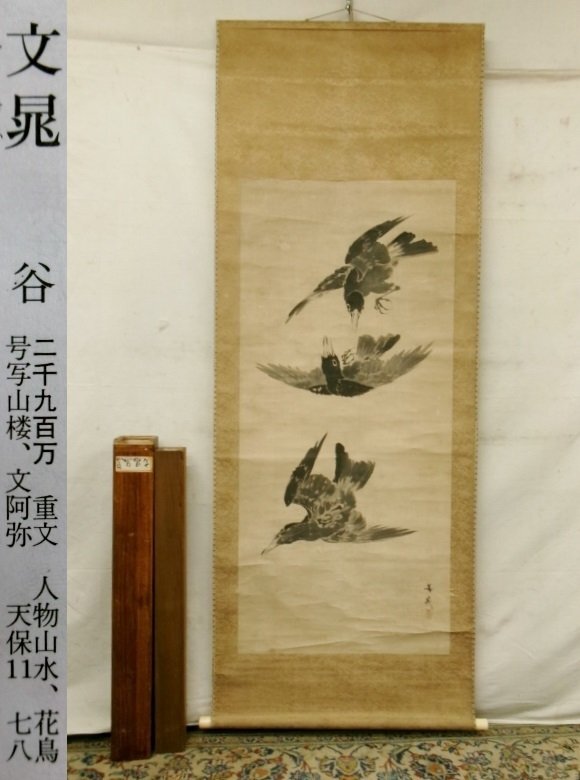 文晁
谷
二千九百万 重文 人物山水、花鳥
号写山楼、文阿弥 天保11 七八